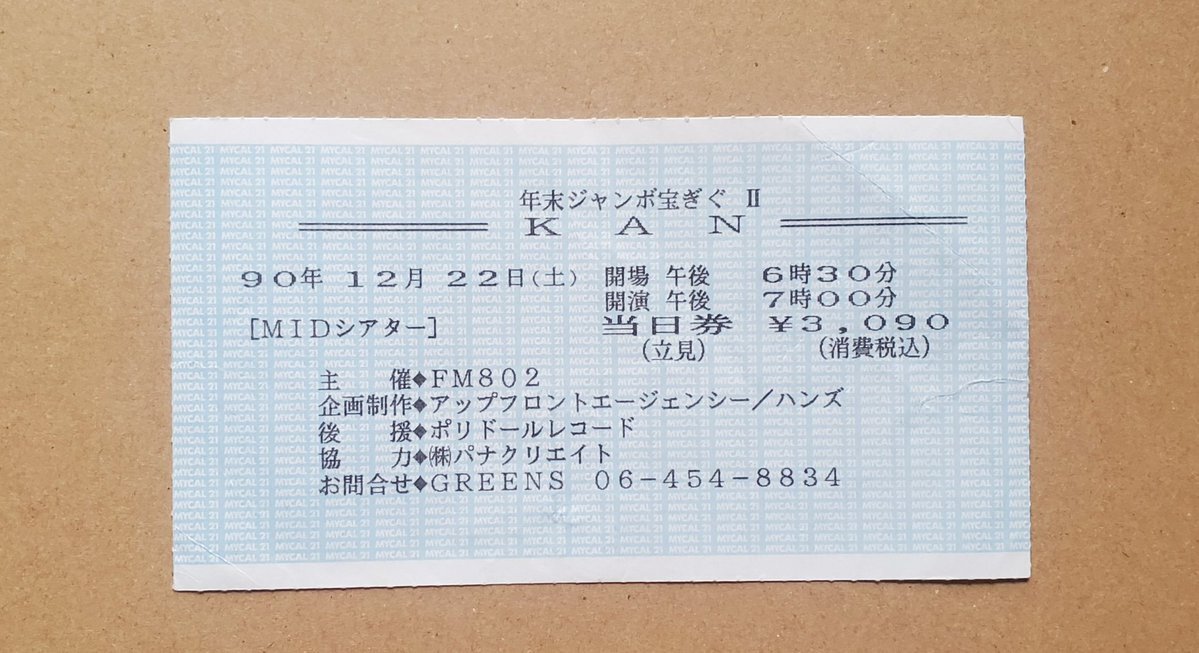 年末ジャンボ宝ぎぐ Ⅱ
KAN
90年 12月 22日(土) 開場 午後 6時30分
開演 午後 7時00分
[MIDシアター] 当日券 ¥3,090
(立見) (消費税込)
主催◆FM802
企画制作◆アップフロントエージェンシー/ハンズ
後援◆ポリドールレコード
協力◆㈱パナクリエイト
お問合せ◆GREENS 06-454-8834
MYCAL 21